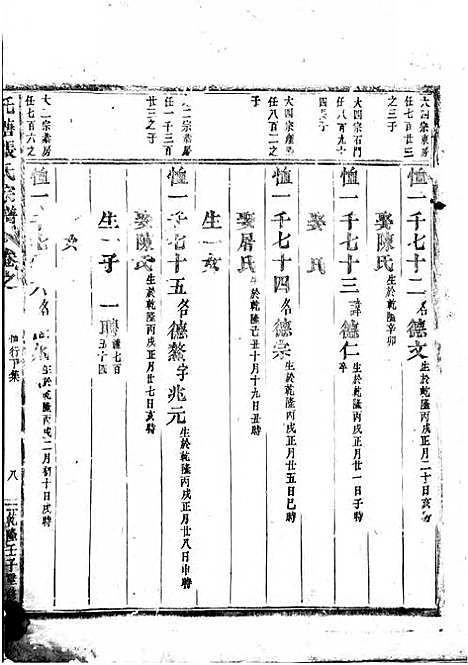 大四宗東房
任七百三十
之三子
恤一千七十二名德文生於乾隆丙戌正月二十日亥時
娶陳氏生於乾隆辛卯
大四宗石門
任八百九十
四長子
恤一千七十三諱德仁生於乾隆丙戌正月廿一日子時卒
娶 氏
大四宗
任八百二之
子
恤一千七十四名德宗生於乾隆丙戌正月廿五日巳時
娶屠氏生於乾隆己丑十月十九日丑時
生一女
大二宗 房
任一千三百
廿三之子
恤一千七十五名德鰲字兆元生於乾隆丙戌正月廿八日申時
娶陳氏生於乾隆丙戌正月廿七日亥時
生一子 一聘謹七百五十四
女
大二宗 房
任七百六之
恤一千七十六名 生於乾隆丙戌二月初十日戌時
毛塘張氏宗譜 卷之
恤行下集
八
乾隆壬子重